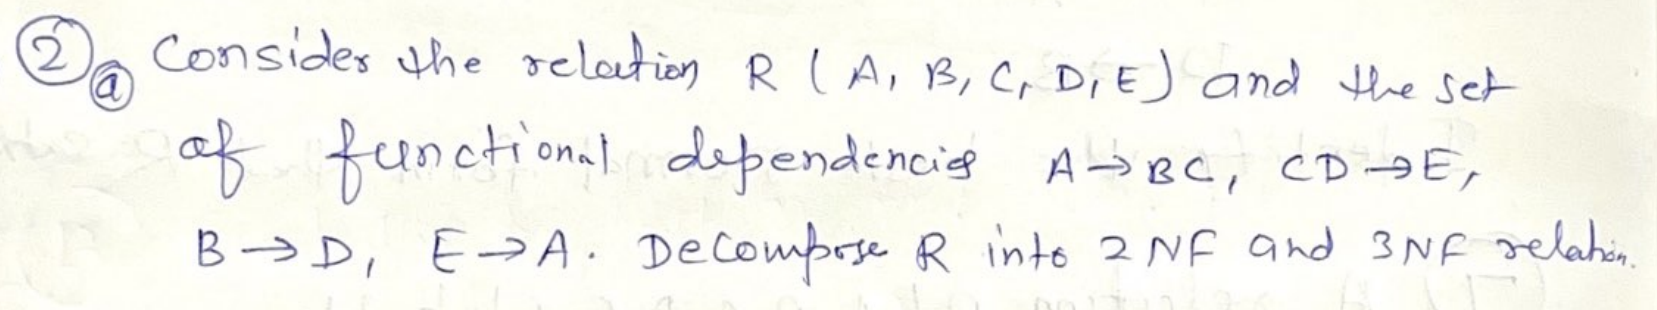 ② ⓐ Consider the relation R ( A, B, C, D, E) and the set
of functional dependencies A→BC, CD→E,
B→D, E→A. Decompose R into 2NF and 3NF relation.